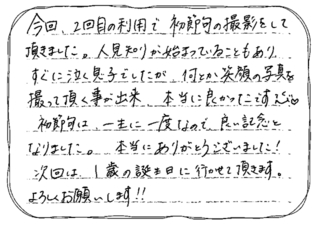 今回、2回目の利用で初節句の撮影をして
頂きました。人見知りが始まっていることもあり、
すぐに泣く息子でしたが、何とか笑顔の写真を
撮って頂く事が出来、本当に良かったです
初節句は、一生に一度なので、良い記念と
なりました。本当にありがとうございました!
次回は、1歳の誕生日に行かせて頂きます。
よろしくお願いします!!